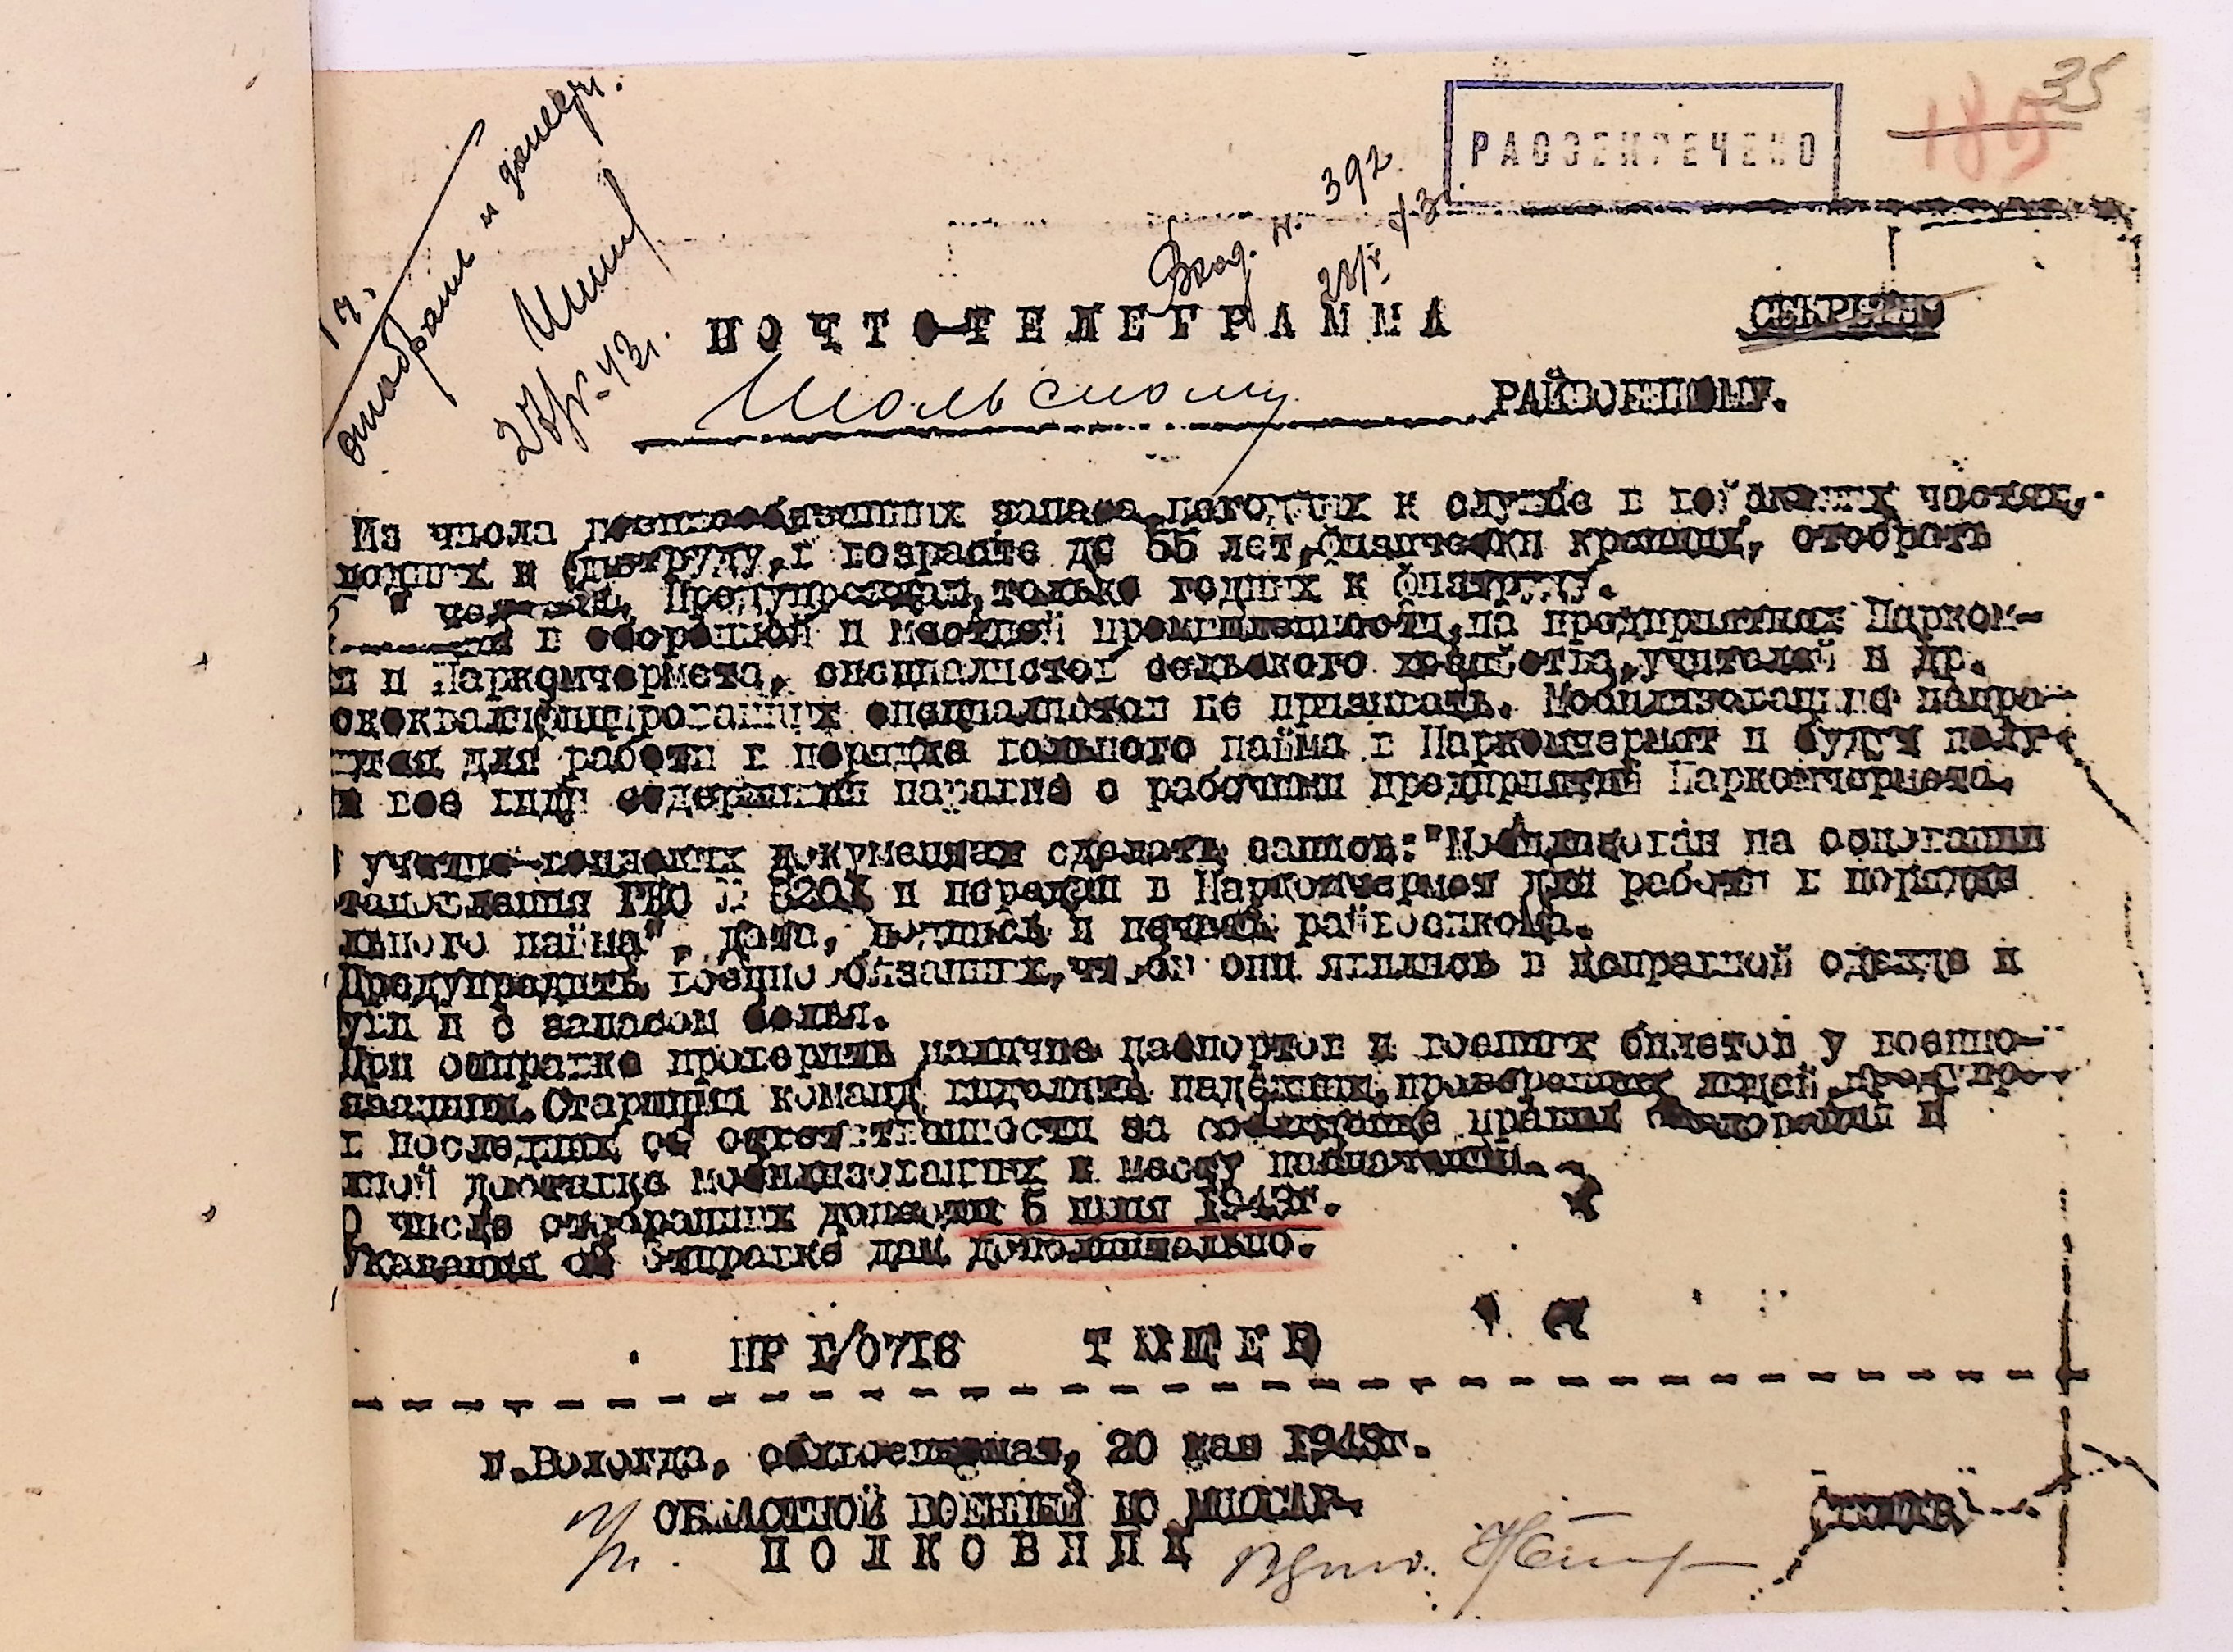 35
189
РАССЕКРЕЧЕНО
Вход. н. 392
отобрать и донести.
ПОЧТО-ТЕЛЕГРАММА
СЕКРЕТНО
Шольскому РАЙВОЕНКОМУ.
Из числа военнообязанных запаса, негодных к службе в войсковых частях,
годных к физтруду, в возрасте до 55 лет, физически крепких, отобрать
Предупреждаю, только годных к физтруду.
в оборонной и местной промышленности, на предприятиях Нарком-
и Наркомчермета, специалистов сельского хозяйства, учителей и др.
ококвалифицированных специалистов не призывать. Мобилизованные напра-
ятся для работы в порядке вольного найма в Наркомчермет и будут полу-
и все виды содержания наравне с рабочими предприятий Наркомчермета.
учетно-воинских документах сделать запись: "Мобилизован на основании
тановления ГКО № 3201 и передан в Наркомчермет для работы в порядке
льного найма", дата, подпись и печать райвоенкома.
Предупредить военнообязанных, чтобы они явились в исправной одежде и
уви и с запасом белья.
При отправке проверить наличие паспортов и военных билетов у военно-
язанных. Старшими команд выделить надежных, проверенных людей, предупре-
в последних об ответственности за соблюдение правил и
ной доставке мобилизованных к месту назначения.
О числе отобранных донести 5 июня 1943г.
Указания об отправке дам дополнительно.
НР I/0716 ТЮЩЕВ
г. Вологда, облвоенкомат, 20 мая 1943г.
ОБЛАСТНОЙ ВОЕННЫЙ КОМИССАР-
ПОЛКОВНИК